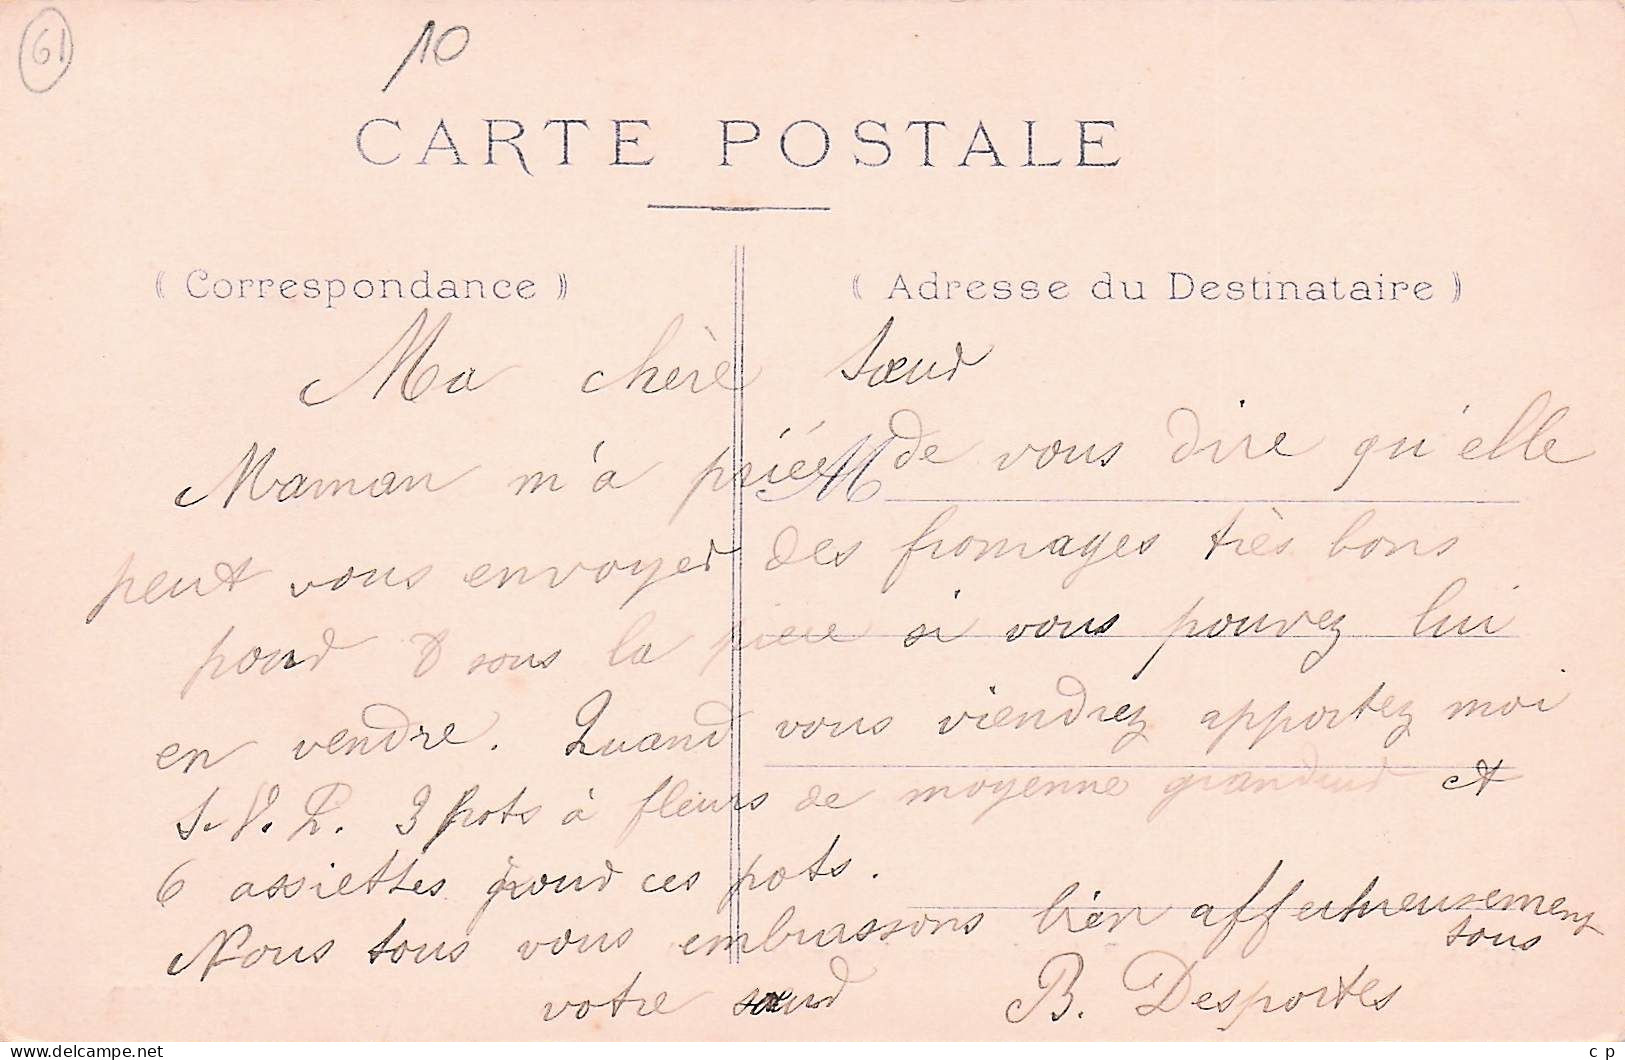 61
10
CARTE POSTALE
( Correspondance )
( Adresse du Destinataire )
Ma chère Sœur
Maman m'a priée M de vous dire qu'elle
peut vous envoyer des fromages très bons
pour 8 sous la pièce si vous pouvez lui
en vendre. Quand vous viendrez apportez moi
S. V. P. 3 pots à fleurs de moyenne grandeur et
6 assiettes pour ces pots.
Nous tous vous embrassons bien affectueusement
tous
votre sœur B. Desportes
www.delcampe.net
c p